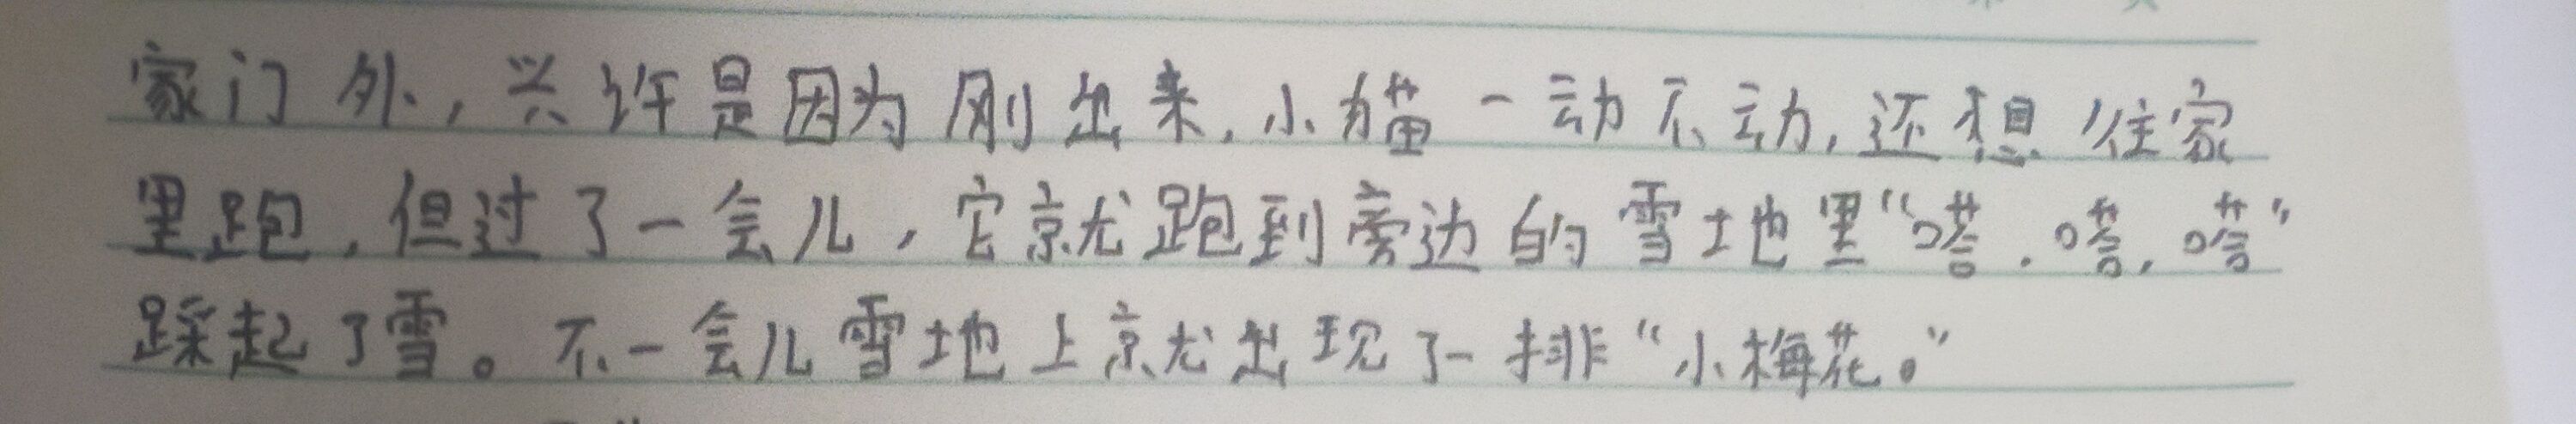 家门外，兴许是因为刚出来，小猫一动不动，还想往家
里跑，但过了一会儿，它就跑到旁边的雪地里“嗒，嗒，嗒”
踩起了雪。不一会儿雪地上就出现了一排“小梅花。”